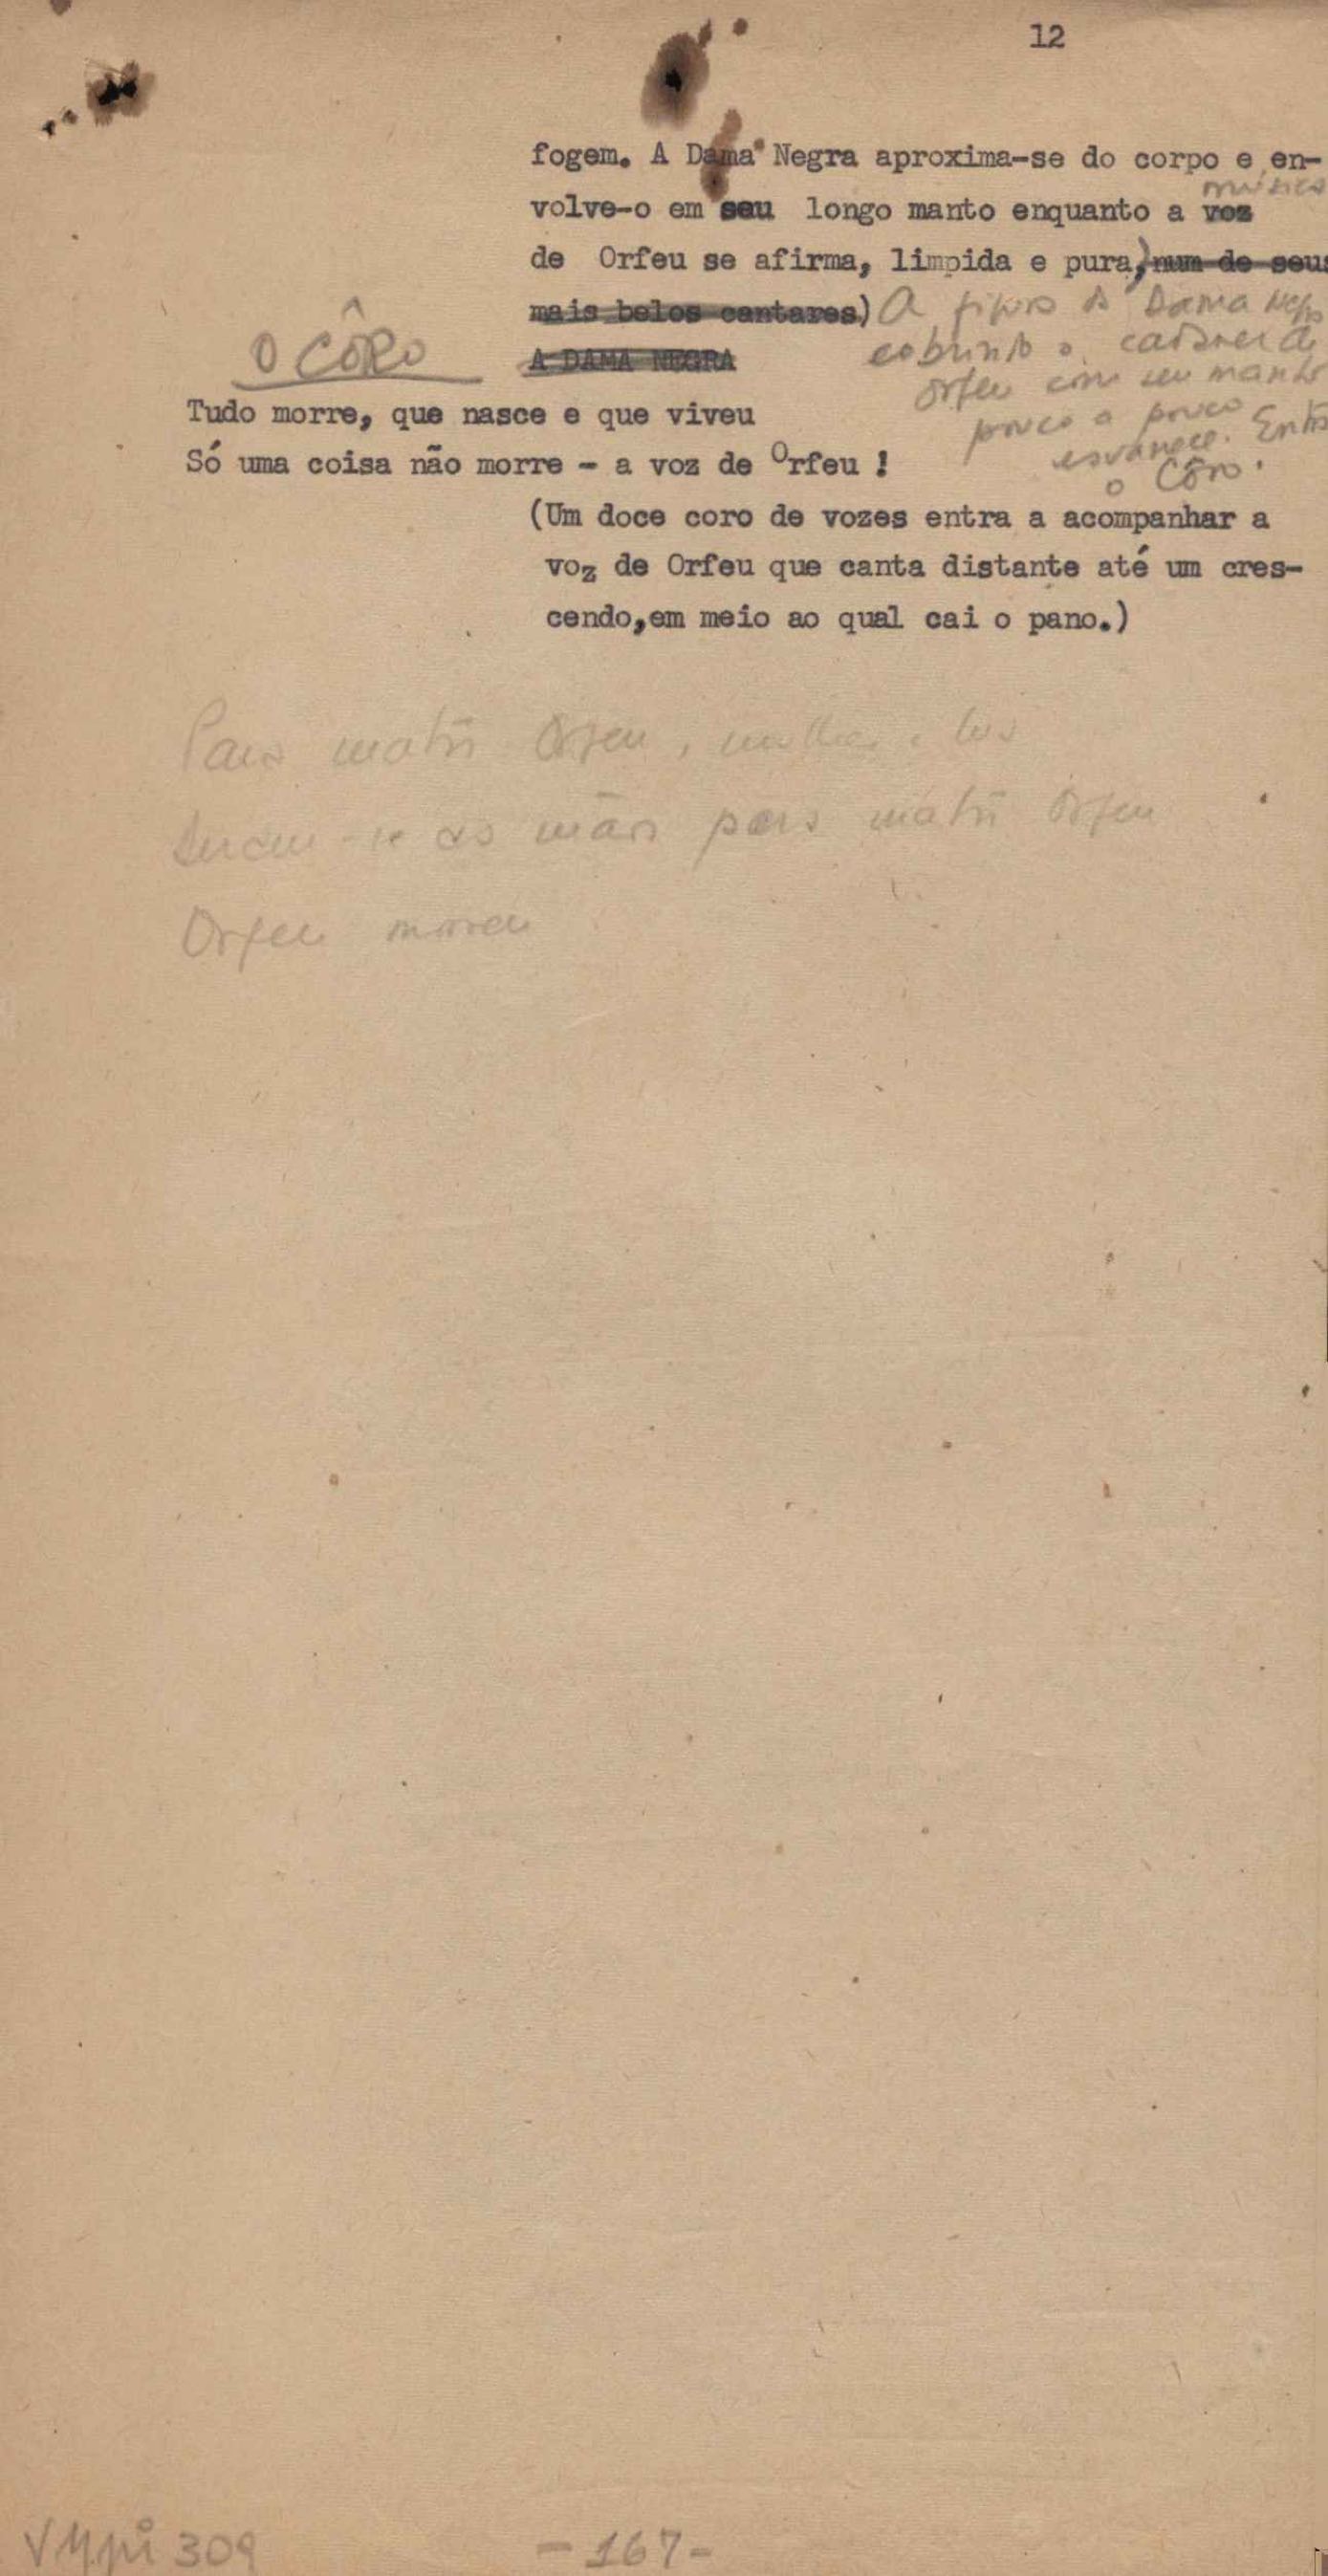 12
fogem. A Dama Negra aproxima-se do corpo e en-
música
volve-o em seu longo manto enquanto a voz
de Orfeu se afirma, limpida e pura,) num de seus
mais belos cantares) A figura da Dama Negra
O CÔRO
A DAMA NEGRA
cobrindo o cadaver de
Orfeu com seu manto
Tudo morre, que nasce e que viveu
pouco a pouco
esvanece. Entra
Só uma coisa não morre - a voz de Orfeu !
o Côro.
(Um doce coro de vozes entra a acompanhar a
voz de Orfeu que canta distante até um cres-
cendo,em meio ao qual cai o pano.)
Para matar Orfeu
as mãos para matar Orfeu
Orfeu morreu
309
-167-